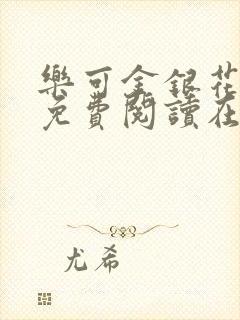 樂可金銀花
免費閱讀在
尤希